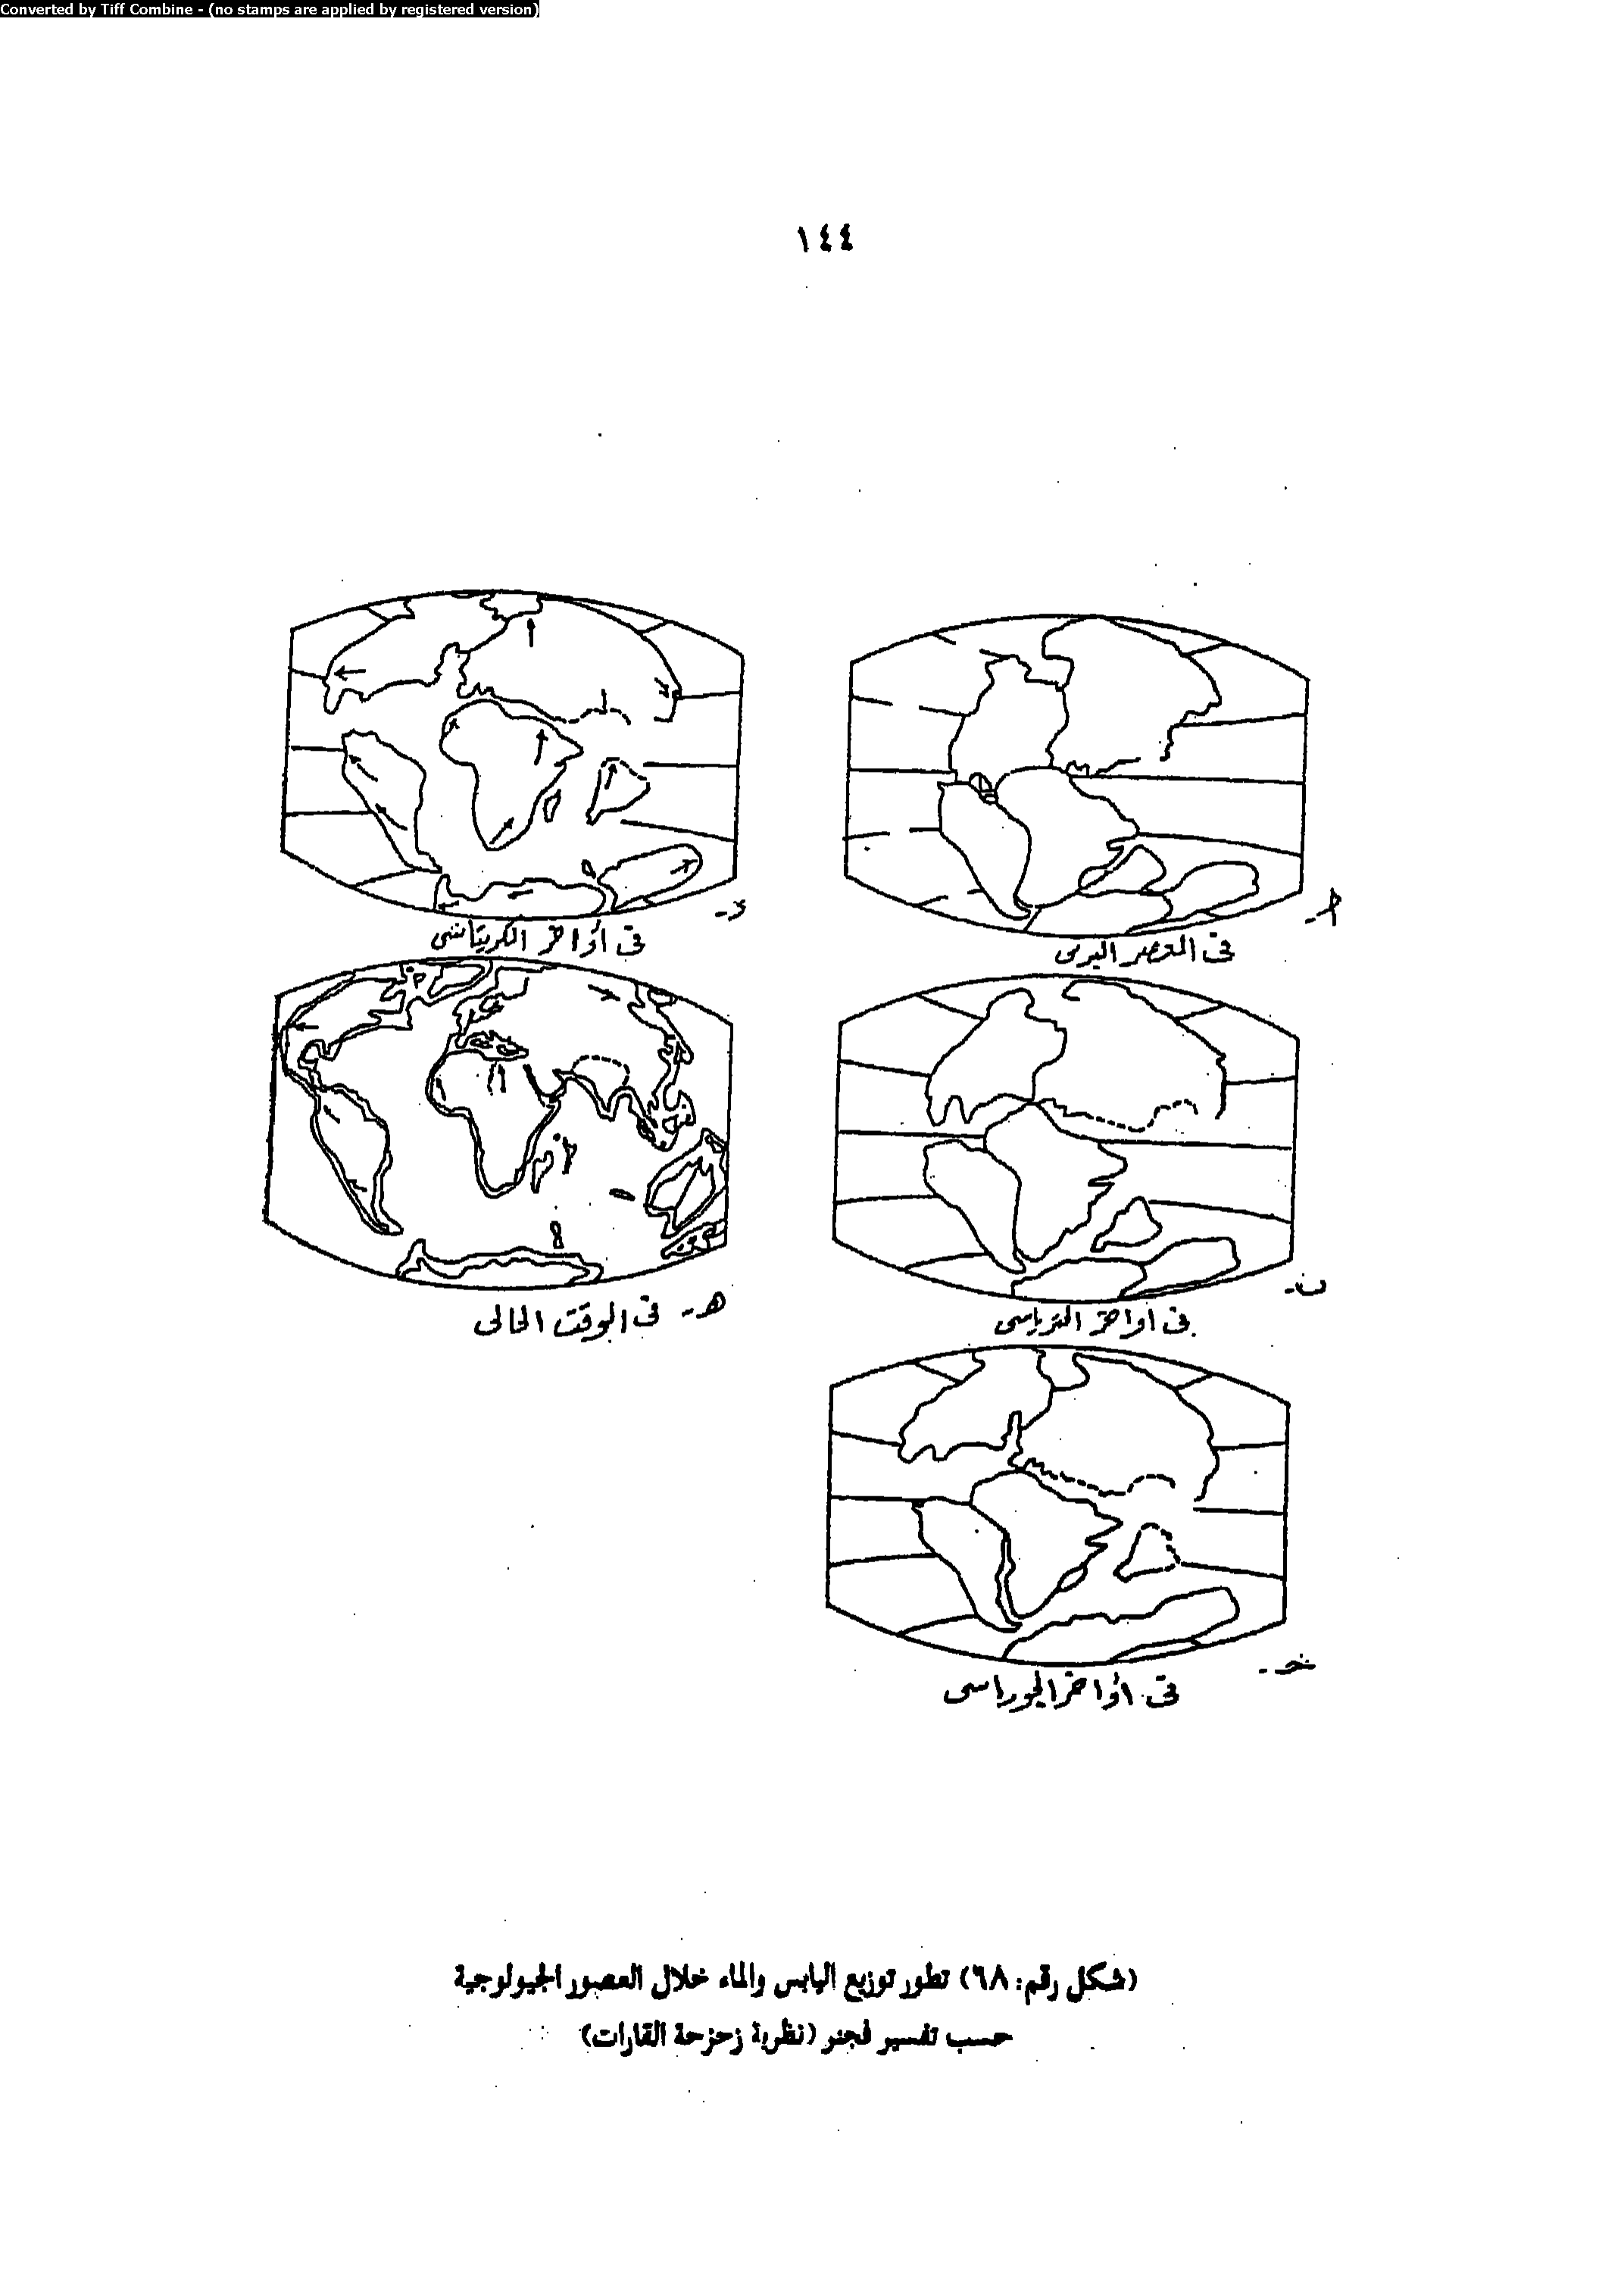 Converted by Tiff Combine - (no stamps are applied by registered version)
١٤٤
أ-
فى العصر البرمى
ب-
فى اواخر الترياسى
جـ-
فى أواخر الجوراسى
د-
فى أواخر الكريتاسى
هـ- فى الوقت الحالى
(شكل رقم: ٦٨) تطور توزيع اليابس والماء خلال العصور الجيولوجية
حسب تفسير فجنر (نظرية زحزحة القارات)